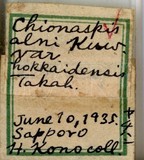 Chionaspis
alni Kuw.
var.
hokkaidensis
Takah.
June 10, 1935.
Sapporo
H. Kono coll